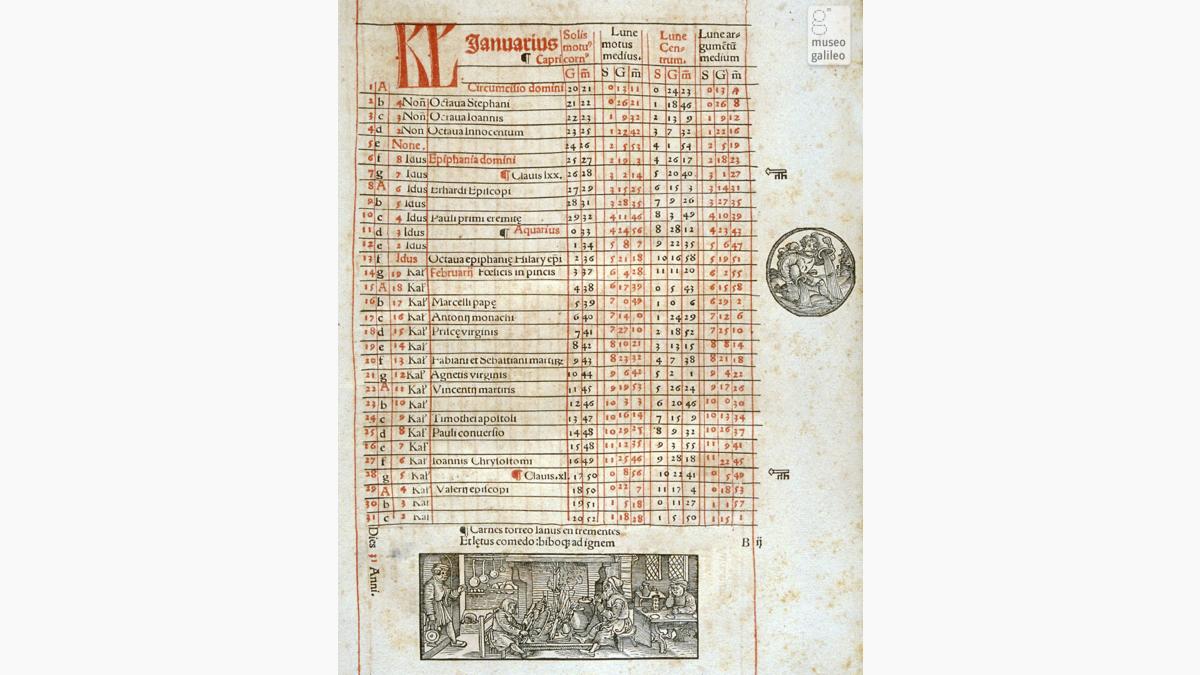 museo
galileo
KL Januarius Solis Lune Lune Lune ar-
motuꝰ motus Cen- gumētū
¶ Capricornꝰ medius. trum. medium
G m̄ S G m̄ S G m̄ S G m̄
1 A Circumcisio domini 20 21 0 13 11 0 24 23 0 13 4
2 b 4 Non̄ Octaua Stephani 21 22 0 26 21 1 18 46 0 26 8
3 c 3 Non̄ Octaua Ioannis 22 23 1 9 32 2 13 9 1 9 12
4 d 2 Non Octaua Innocentum 23 25 1 22 42 3 7 32 1 22 16
5 e None. 24 26 2 5 53 4 1 54 2 5 19
6 f 8 Idus Epiphania domini 25 27 2 19 3 4 26 17 2 18 23
7 g 7 Idus ¶ Clauis lxx. 26 28 3 2 14 5 20 40 3 1 27
8 A 6 Idus Erhardi Episcopi 27 29 3 15 25 6 15 3 3 14 31
9 b 5 Idus 28 31 3 28 35 7 9 26 3 27 35
10 c 4 Idus Pauli primi eremitę 29 32 4 11 46 8 3 49 4 10 39
11 d 3 Idus ¶ Aquarius 0 33 4 24 56 8 28 12 4 23 43
12 e 2 Idus 1 34 5 8 7 9 22 35 5 6 47
13 f Idus Octaua epiphanię Hilarij ep̄i 2 36 5 21 18 10 16 58 5 19 51
14 g 19 Kal' Februarij Fœlicis in pincis 3 37 6 4 28 11 11 20 6 2 55
15 A 18 Kal' 4 38 6 17 39 0 5 43 6 15 58
16 b 17 Kal' Marcelli papę 5 39 7 0 49 1 0 6 6 29 2
17 c 16 Kal' Antonij monachi 6 40 7 14 0 1 24 29 7 12 6
18 d 15 Kal' Priscę virginis 7 41 7 27 10 2 18 52 7 25 10
19 e 14 Kal' 8 42 8 10 21 3 13 15 8 8 14
20 f 13 Kal' Fabiani et Sebastiani martirū 9 43 8 23 32 4 7 38 8 21 18
21 g 12 Kal' Agnetis virginis 10 44 9 6 42 5 2 1 9 4 22
22 A 11 Kal' Vincentij martiris 11 45 9 19 53 5 26 24 9 17 26
23 b 10 Kal' 12 46 10 3 3 6 20 46 10 0 30
24 c 9 Kal' Timothei apostoli 13 47 10 16 14 7 15 9 10 13 34
25 d 8 Kal' Pauli conuersio 14 48 10 29 25 8 9 32 10 26 37
26 e 7 Kal' 15 48 11 12 35 9 3 55 11 9 41
27 f 6 Kal' Ioannis Chrysostomi 16 49 11 25 46 9 28 18 11 22 45
28 g 5 Kal' ¶ Clauis.xl. 17 50 0 8 56 10 22 41 0 5 49
29 A 4 Kal' Valerij episcopi 18 50 0 22 7 11 17 4 0 18 53
30 b 3 Kal' 19 51 1 5 18 0 11 27 1 1 57
31 c 2 Kal' 20 52 1 18 28 1 5 50 1 15 1
Dies 31 Anni.
¶ Carnes torreo Ianus en trementes
Et lętus comedo: biboqꝫ ad ignem B ij